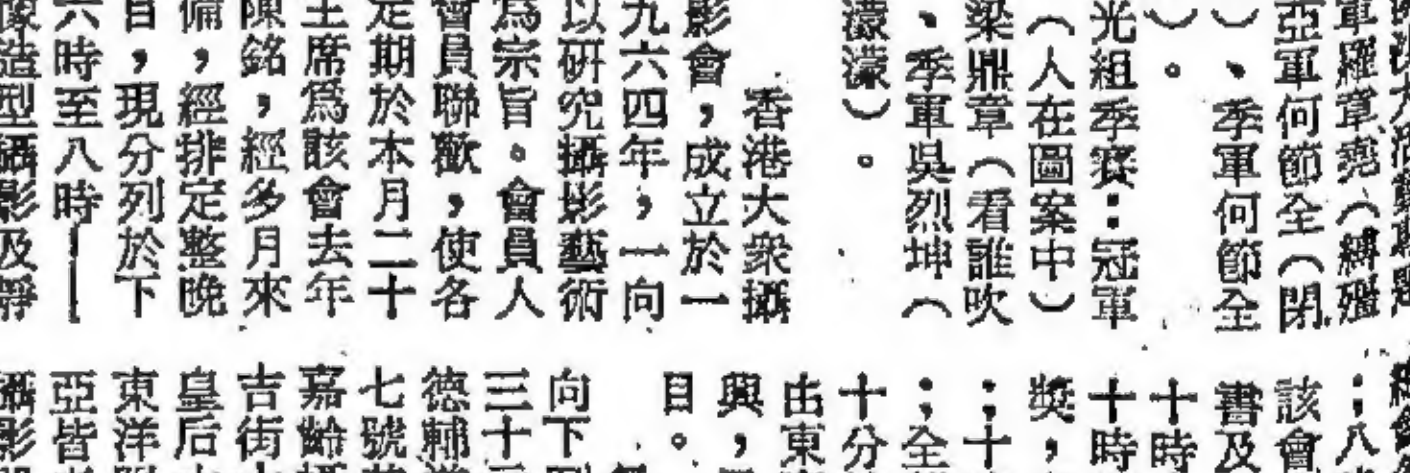 軍羅章堯(縛殲
亞軍何節全(閉
)、季軍何節全
)。
光組季賽:冠軍
(人在圖案中)
梁鼎章(看誰吹
、季軍吳烈坤(
濛濛)。
香港大衆攝
影會,成立於一
九六四年,一向
以研究攝影藝術
為宗旨。會員人
會員聯歡,使各
定期於本月二十
主席為該會去年
陳銘,經多月來
備,經排定整晚
目,現分列於下
六時至八時—
像造型攝影及靜
;八
該會
書及
十時
十時
獎,
;十
;全
十分
由東
興,
目。
向下
三十
德輔
七號
嘉齡
吉街
皇后
東洋
亞皆
攝影